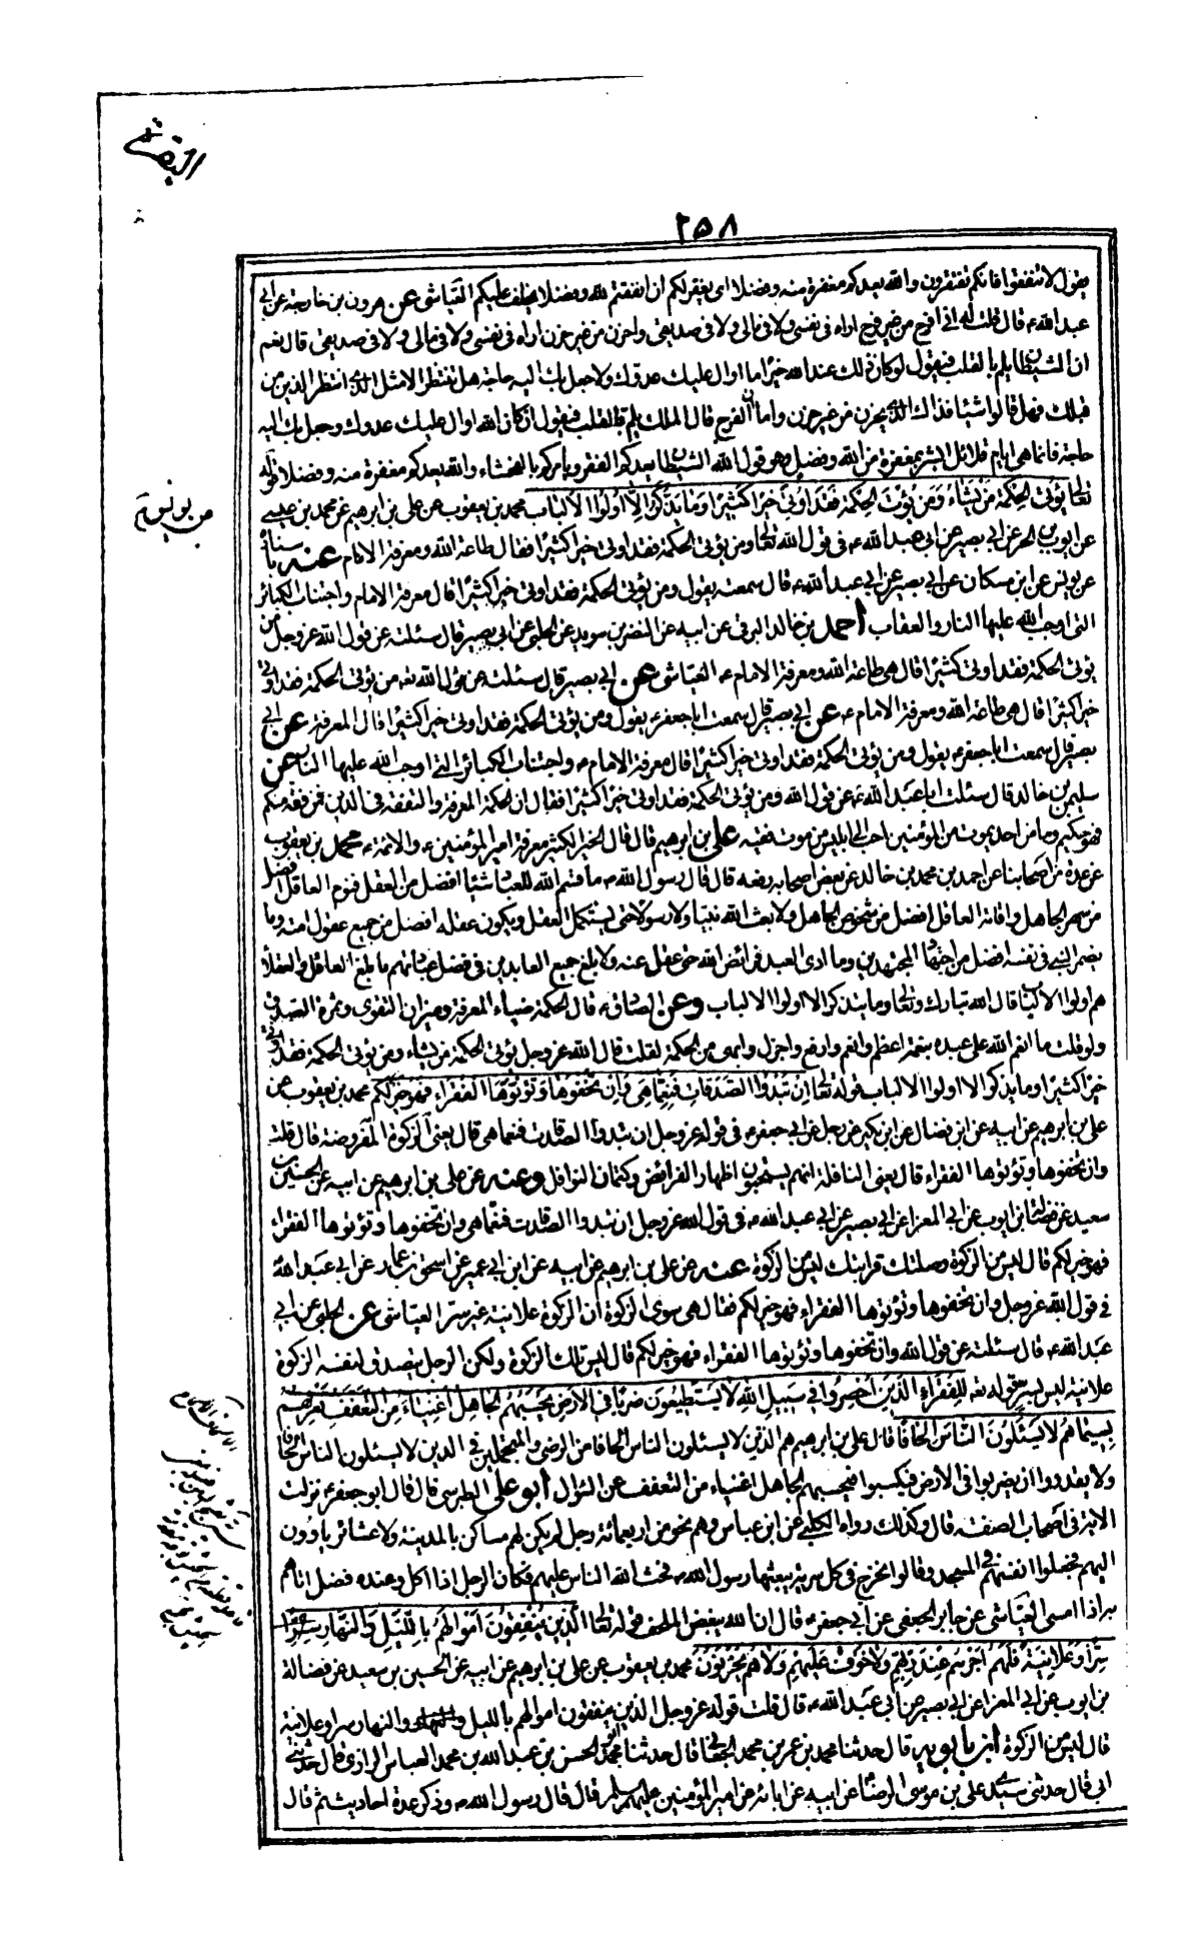 البقرة
٢٥٨
يقول لا تنفقوا فانكم تفتقرون والله يعدكم مغفرة منه وفضلا اى يغفر لكم ان انفقتم لله وفضلا يخلف عليكم العياشى عن هرون بن خارجة عن ابى
عبد الله ع قال قلت له انى افرح من غير فرح اراه فى نفسى ولا فى مالى ولا فى صديقى واحزن من غير حزن اراه فى نفسى ولا فى مالى ولا فى صديقى قال نعم
ان الشيطان يلم بالقلب فيقول لو كان ذلك عند الله خيرا ما اوال عليك عدوك ولا جعل بك اليه حاجة هل تنتظر الا مثل الذى انتظر الذين من
قبلك فهل قالوا شيئا فذاك الذى يحزن من غير حزن واما الفرح فان الملك يلم بالقلب فيقول ان كان الله اوال عليك عدوك وجعل بك اليه
حاجة فانما هى ايام قلائل ابشر بمغفرة من الله وفضل وهو قول الله الشيطان يعدكم الفقر ويامركم بالفحشاء والله يعدكم مغفرة منه وفضلا قوله
تعالى يؤتى الحكمة من يشاء ومن يؤت الحكمة فقد اوتى خيرا كثيرا وما يذكر الا اولوا الالباب محمد بن يعقوب عن على بن ابرهيم عن محمد بن عيسى
من يونس
عن ايوب بن الحر عن ابى بصير عن ابى عبد الله ع فى قول الله تعالى ومن يؤتى الحكمة فقد اوتى خيرا كثيرا فقال طاعة الله ومعرفة الامام عنه باسناده
عن يونس عن ابن مسكان عن ابى بصير عن ابى عبد الله ع قال سمعته يقول ومن يؤتى الحكمة فقد اوتى خيرا كثيرا قال معرفة الامام واجتناب الكبائر
التى اوجب الله عليها النار والعقاب احمد بن خالد البرقى عن ابيه عن النضر بن سويد عن الحلبى عن ابى بصير قال سئلته عن قول الله عز وجل من
يؤتى الحكمة فقد اوتى كثيرا قال هى طاعة الله ومعرفة الامام ع العياشى عن ابى بصير قال سئلته عن قول الله تع من يؤتى الحكمة فقد اوتى
خيرا كثيرا قال هى طاعة الله ومعرفة الامام ع عن ابى بصير قال سمعت ابا جعفر ع يقول ومن يؤتى الحكمة فقد اوتى خيرا كثيرا قال المعرفة عن ابى
بصير قال سمعت ابا جعفر ع يقول ومن يؤتى الحكمة فقد اوتى خيرا كثيرا قال معرفة الامام ع واجتناب الكبائر التى اوجب الله عليها النار عن
سليمن بن خالد قال سئلت ابا عبد الله ع عن قول الله ومن يؤتى الحكمة فقد اوتى خيرا كثيرا فقال ان الحكمة المعرفة والتفقه فى الدين فمن فقه منكم
فهو حكيم وما من احد يموت من المؤمنين احب الى ابليس من موت فقيه على بن ابرهيم قال قال الخير الكثير معرفة امير المؤمنين ع والائمة ع محمد بن يعقوب
عن عدة من اصحابنا عن احمد بن محمد بن خالد عن بعض اصحابه رفعه قال قال رسول الله ص ما قسم الله للعباد شيئا افضل من العقل فنوم العاقل افضل
من سهر الجاهل واقامة العاقل افضل من شخوص الجاهل ولا بعث الله نبيا ولا رسولا حتى يستكمل العقل ويكون عقله افضل من جميع عقول امته وما
يضمر النبى فى نفسه افضل من اجتهاد المجتهدين وما ادى العبد فرائض الله حتى عقل عنه ولا بلغ جميع العابدين فى فضل عبادتهم ما بلغ العاقل والعقلاء
هم اولوا الالباب قال الله تبارك وتعالى وما يتذكر الا اولوا الالباب وعن الصادق ع قال الحكمة ضياء المعرفة وميزان التقوى وثمرة الصدق
ولو قلت ما انعم الله على عبده بنعمة اعظم وانعم وارفع واجزل وابهى من الحكمة لقلت قال الله عز وجل يؤتى الحكمة من يشاء ومن يؤتى الحكمة فقد اوتى
خيرا كثيرا وما يذكر الا اولوا الالباب قوله تعالى ان تبدوا الصدقات فنعما هى وان تخفوها وتؤتوها الفقراء فهو خير لكم محمد بن يعقوب عن
على بن ابرهيم عن ابيه عن ابن فضال عن ابن بكير عن رجل عن ابى جعفر ع فى قوله عز وجل ان تبدوا الصدقات فنعما هى قال يعنى الزكوة المفروضة قال قلت
وان تخفوها وتؤتوها الفقراء قال يعنى النافلة انهم يستحبون اظهار الفرائض وكتمان النوافل وعنه عن على بن ابرهيم عن ابيه عن الحسين بن
سعيد عن فضالة بن ايوب عن ابى المعزا عن ابى بصير عن ابى عبد الله ع فى قول الله عز وجل ان تبدوا الصدقات فنعما هى وان تخفوها وتؤتوها الفقراء
فهو خير لكم قال ليس من الزكوة وصلتك قرابتك ليس من الزكوة عنه عن على بن ابرهيم عن ابيه عن ابن ابى عمير عن اسحق بن عمار عن ابى عبد الله ع
فى قول الله عز وجل وان تخفوها وتؤتوها الفقراء فهو خير لكم فقال هى سوى الزكوة ان الزكوة علانية غير سر العياشى عن الحلبى عن ابى
عبد الله ع قال سئلته عن قول الله وان تخفوها وتؤتوها الفقراء فهو خير لكم قال ليس تلك الزكوة ولكن الرجل يتصدق لنفسه الزكوة
علانية ليس بسر قوله تعه للفقراء الذين احصروا فى سبيل الله لا يستطيعون ضربا فى الارض يحسبهم الجاهل اغنياء من التعفف تعرفهم
بسيماهم لا يسئلون الناس الحافا قال على بن ابرهيم هم الذين لا يسئلون الناس الحافا من الراضين والمتجملين فى الدين لا يسئلون الناس الحافا
ولا يقدروا ان يضربوا فى الارض فيكسبوا فيحسبهم الجاهل اغنياء من التعفف عن السؤال ابو على الطبرسى قال قال ابو جعفر ع نزلت
الاية فى اصحاب الصفة قال وكذلك رواه الكلبى عن ابن عباس وهم نحو من اربعمائة رجل لم يكن لهم مساكن بالمدينة ولا عشائر ياوون
اليهم فجعلوا انفسهم فى المسجد وقالوا نخرج فى كل سرية يبعثها رسول الله ص فحث الله الناس عليهم فكان الرجل اذا اكل وعنده فضل اتاهم
به اذا امسى العياشى عن جابر الجعفى عن ابى جعفر ع قال ان الله يبغض الملحف قوله تعالى الذين ينفقون اموالهم بالليل والنهار
سرا وعلانية فلهم اجرهم عند ربهم ولا خوف عليهم ولا هم يحزنون محمد بن يعقوب عن على بن ابرهيم عن ابيه عن الحسين بن سعيد عن فضالة
بن ايوب عن ابى المعزا عن ابى بصير عن ابى عبد الله ع قال قلت قوله عز وجل الذين ينفقون اموالهم بالليل والنهار سرا وعلانية
قال ليس من الزكوة ابن بابويه قال حدثنا محمد بن عمر بن محمد الجعابى قال حدثنا ابو محمد الحسن بن عبد الله بن محمد العباس الرازى قال حدثنى
ابى قال حدثنى سيدى على بن موسى الرضا ع عن ابيه عن ابائه عن امير المؤمنين عليهم السلم قال قال رسول الله ص وذكر عدة احاديث ثم قال